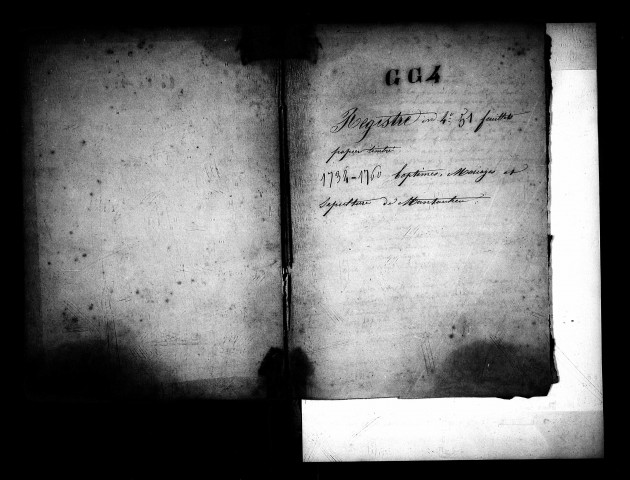 GG4
Registre in 4° 51 feuillets
papier timbré
1738-1760 baptêmes, Mariages et
Sépulture de